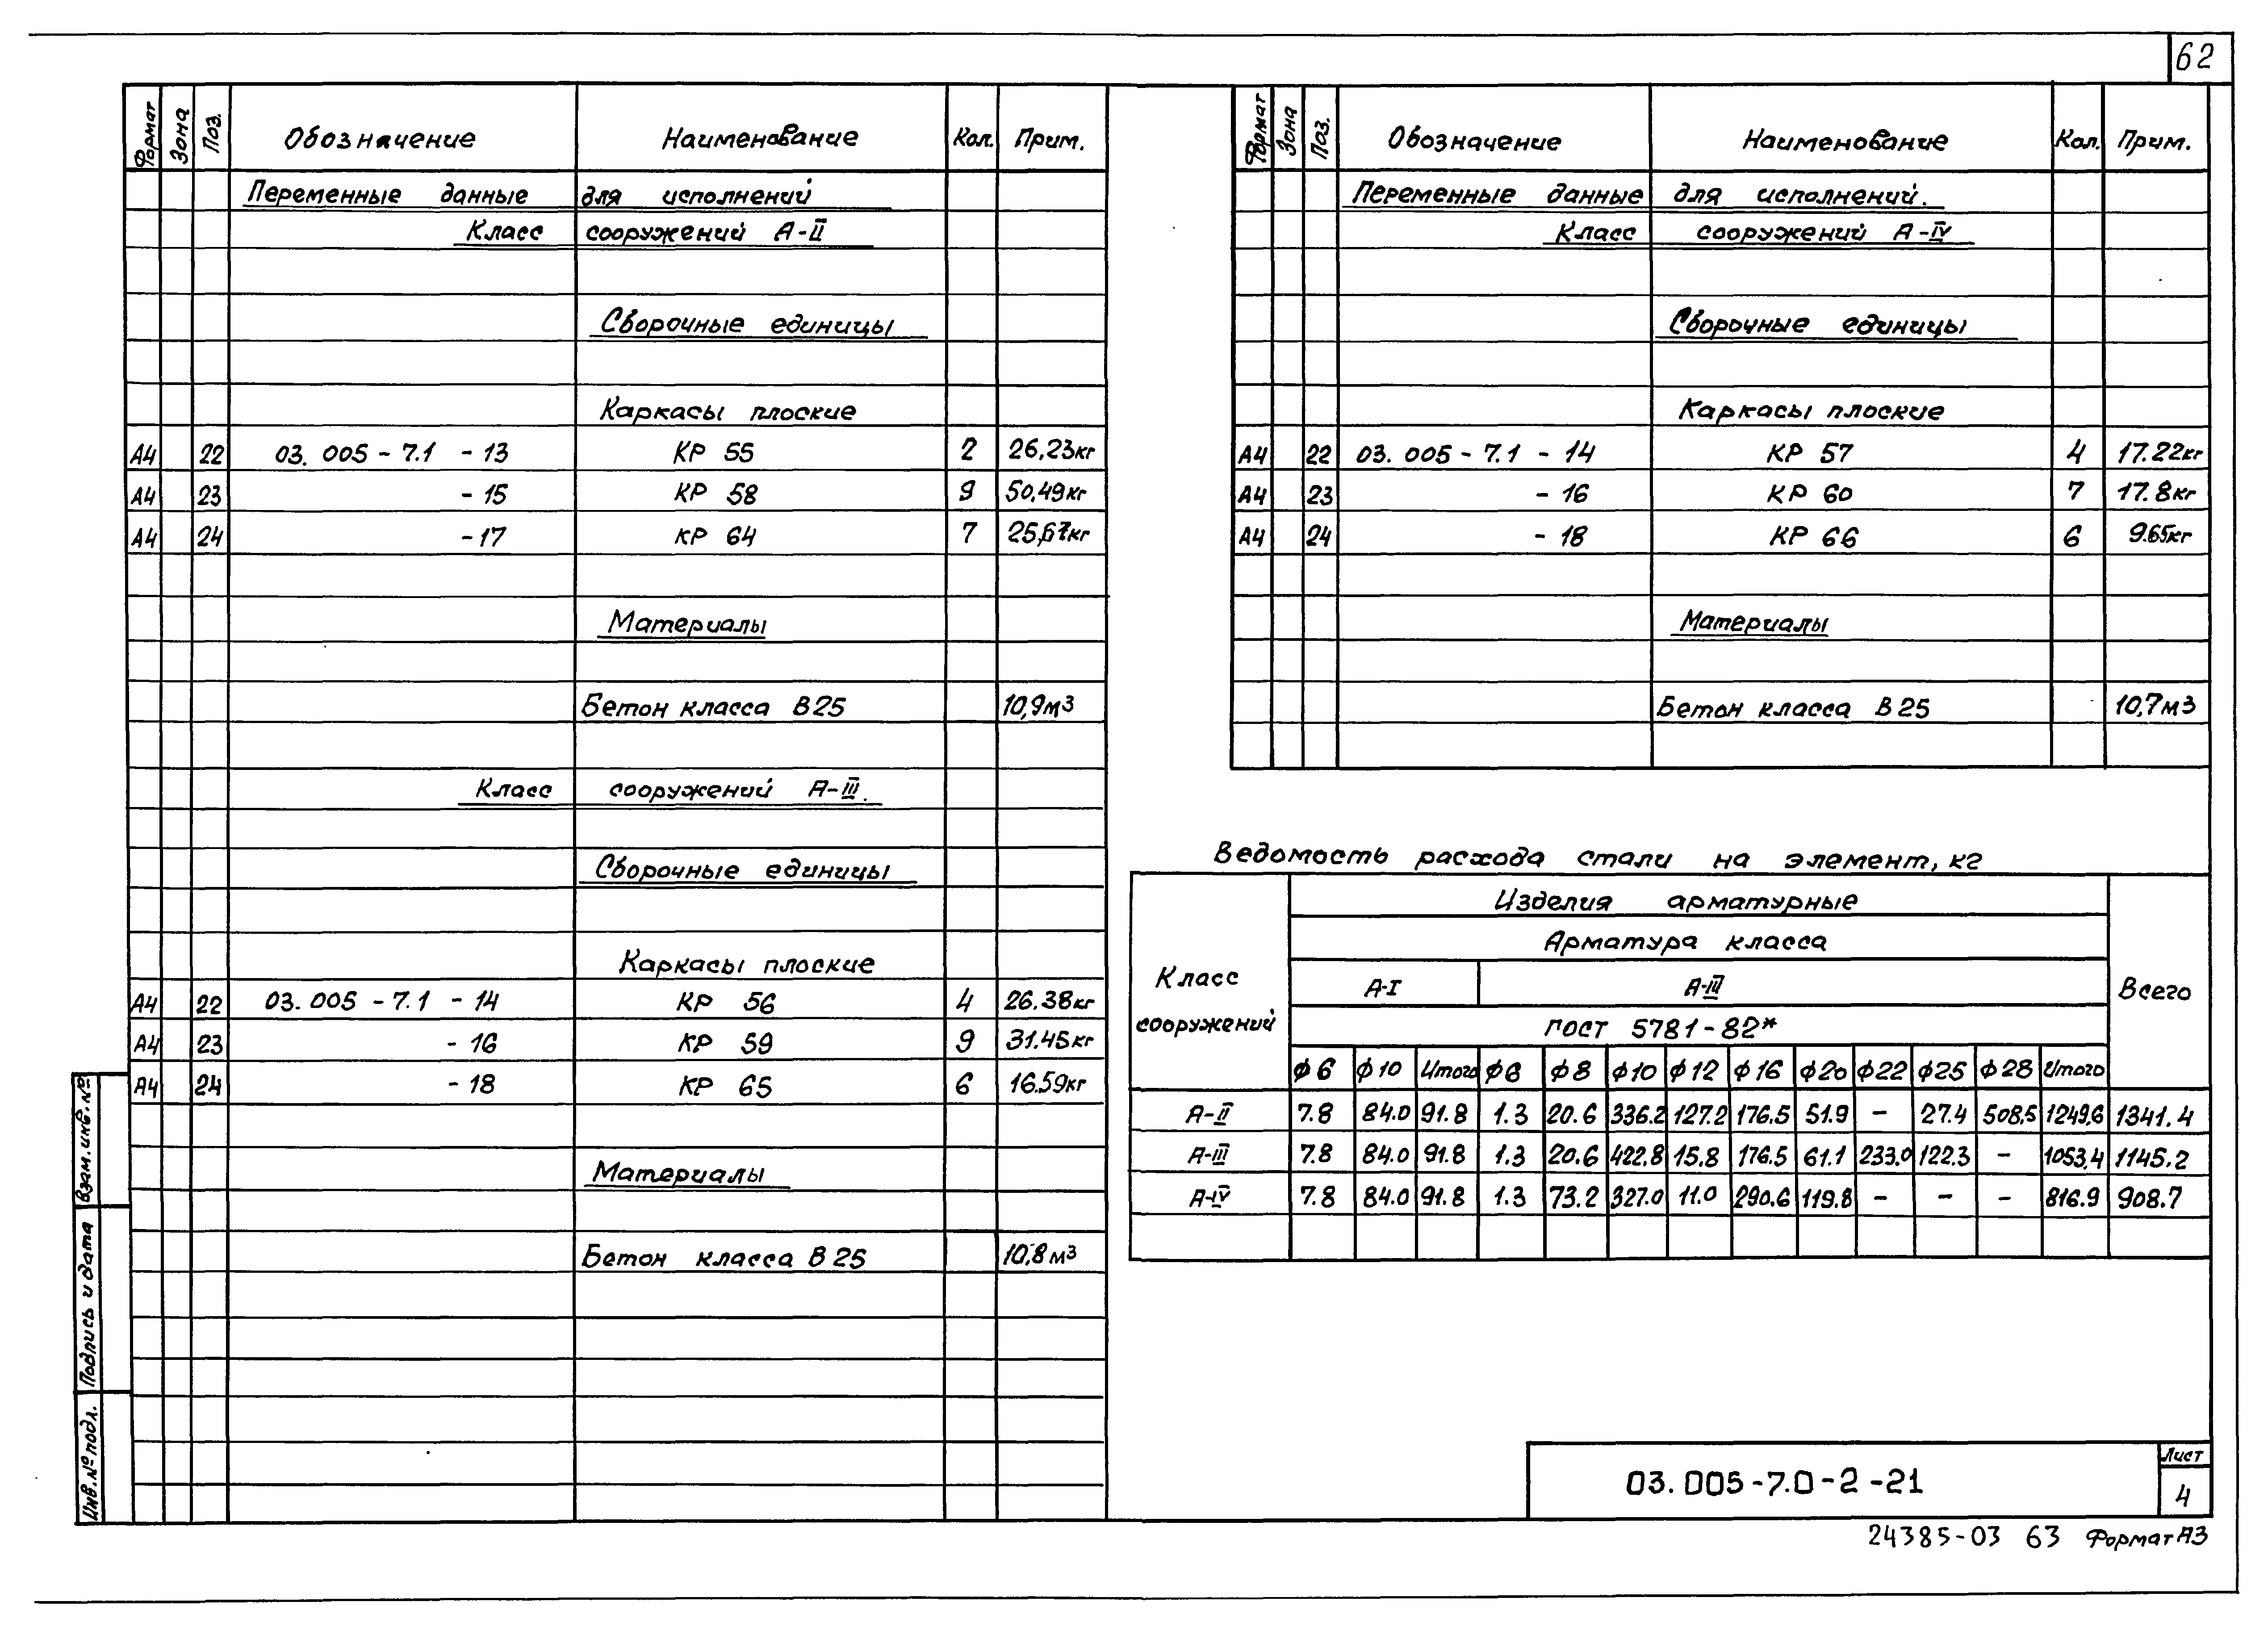 62
Формат Зона Поз. Обозначение Наименование Кол. Прим.
Переменные данные для исполнений
Класс сооружений А-II
Сборочные единицы
Каркасы плоские
А4 22 03.005-7.1 -13 КР 55 2 26,23кг
А4 23 -15 КР 58 9 50,49кг
А4 24 -17 КР 64 7 25,67кг
Материалы
Бетон класса В25 10,9м3
Класс сооружений А-III.
Сборочные единицы
Каркасы плоские
А4 22 03.005-7.1 -14 КР 56 4 26.38кг
А4 23 -16 КР 59 9 31.45кг
А4 24 -18 КР 65 6 16.59кг
Материалы
Бетон класса В25 10,8м3
Формат Зона Поз. Обозначение Наименование Кол. Прим.
Переменные данные для исполнений.
Класс сооружений А-IV
Сборочные единицы
Каркасы плоские
А4 22 03.005-7.1-14 КР 57 4 17.22кг
А4 23 -16 КР 60 7 17.8кг
А4 24 -18 КР 66 6 9.65кг
Материалы
Бетон класса В25 10,7м3
Ведомость расхода стали на элемент, кг
Класс сооружений
Изделия арматурные
Всего
Арматура класса
А-I А-III
ГОСТ 5781-82*
ф6 ф10 Итого ф6 ф8 ф10 ф12 ф16 ф20 ф22 ф25 ф28 Итого
А-II 7.8 84.0 91.8 1.3 20.6 336.2 127.2 176.5 51.9 - 27.4 508.5 1249,6 1341.4
А-III 7.8 84.0 91.8 1.3 20.6 422.8 15.8 176.5 61.1 233.0 122.3 - 1053,4 1145.2
А-IV 7.8 84.0 91.8 1.3 73.2 327.0 11.0 290.6 119.8 - - - 816.9 908.7
Взам.инв.№
Подпись и дата
Инв.№подл.
03.005-7.0-2-21
Лист
4
24385-03 63 Формат А3